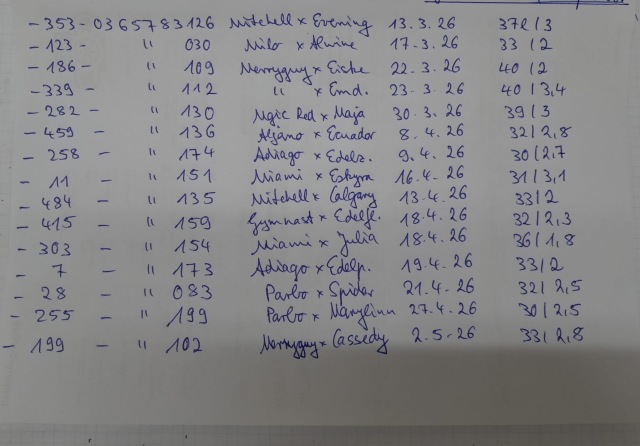 - 353 - 03657 83126 Mitchell x Evening 13.3.26 37l/3
- 123 - " 030 Milo x Alwine 17.3.26 33/2
- 186 - " 109 Merryguy x Eiche 22.3.26 40/2
- 339 - " 112 " x Emd. 23.3.26 40/3,4
- 282 - " 130 Mgic Red x Maja 30.3.26 39/3
- 459 - " 136 x Ecuador 8.4.26 32/2,8
- 258 - " 174 Adiago x Edelz. 9.4.26 30/2,7
- 11 - " 151 Miami x 16.4.26 31/3,1
- 484 - " 135 Mitchell x Calgary 13.4.26 33/2
- 415 - " 159 Gymnast x Edelfl. 18.4.26 32/2,3
- 303 - " 154 Miami x Julia 18.4.26 36/1,8
- 7 - " 173 Adiago x Edelp. 19.4.26 33/2
- 28 - " 083 Parbo x Spider 21.4.26 32/2,5
- 255 - " 199 Parbo x Marylinn 27.4.26 30/2,5
- 199 - " 102 Merryguy x Cassedy 2.5-26 33/2,8